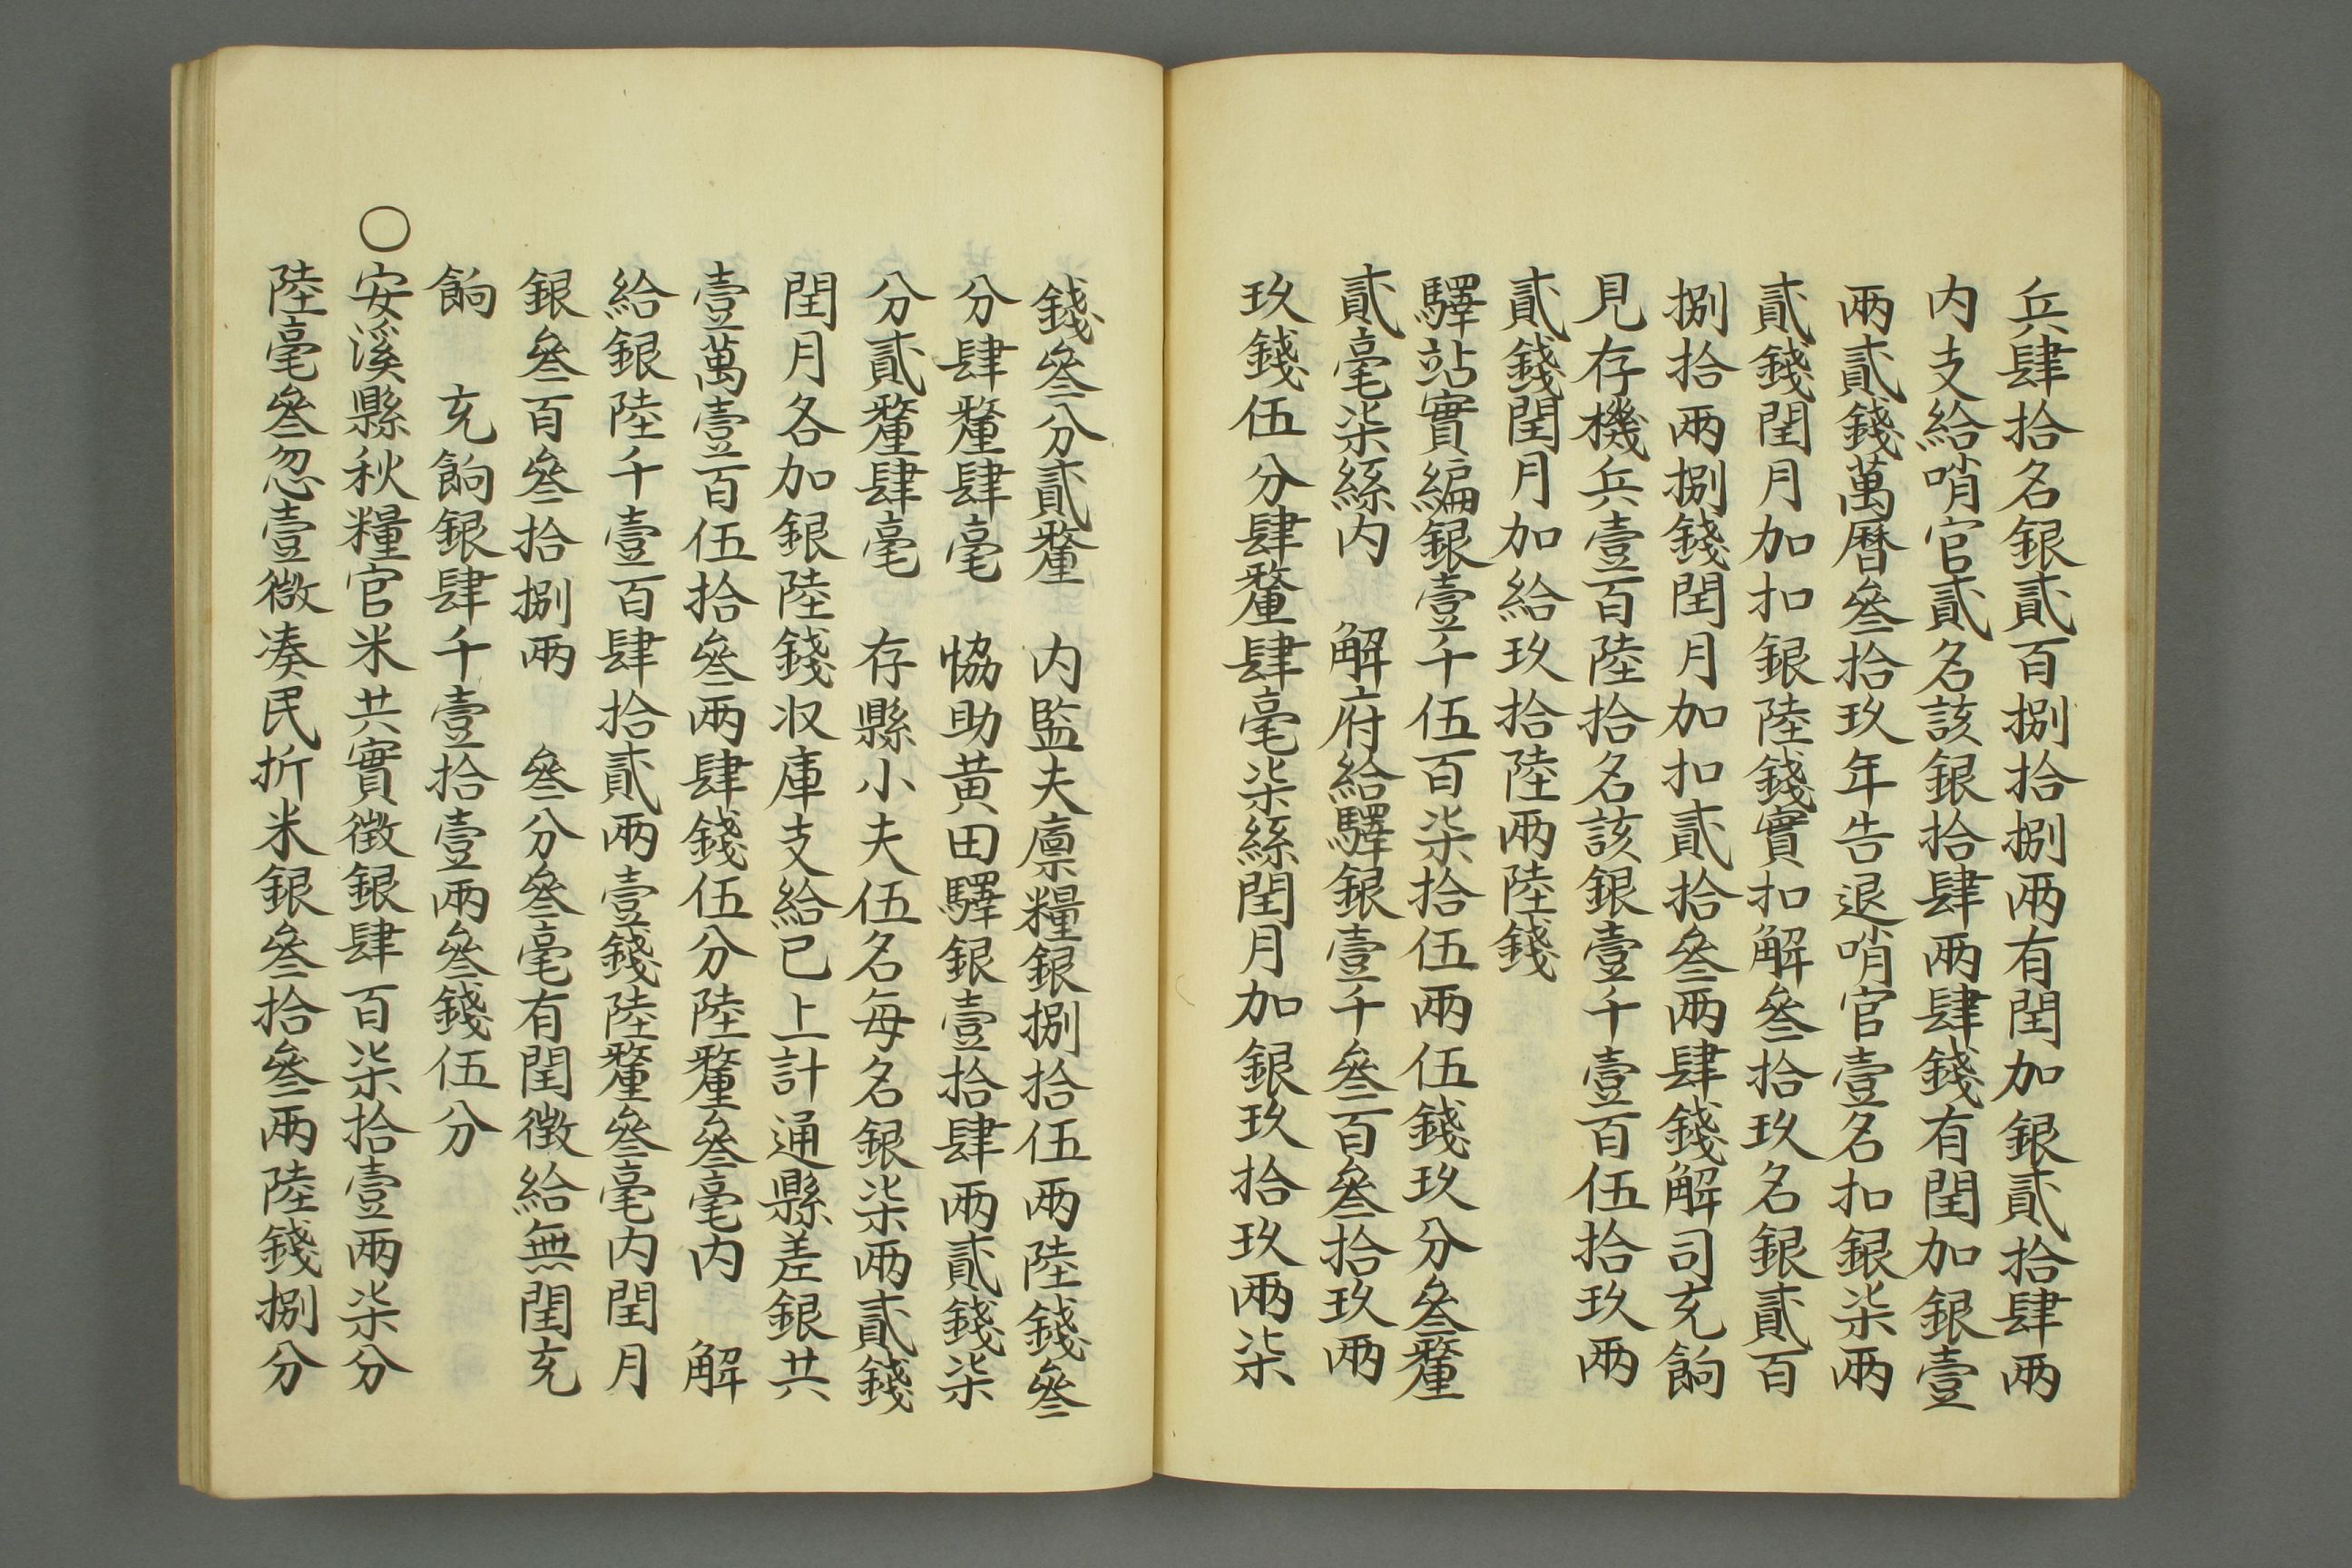 兵肆拾名銀貳百捌拾捌兩有閏加銀貳拾肆兩
内支給哨官貳名該銀拾肆兩肆錢有閏加銀壹
兩貳錢萬曆叄拾玖年告退哨官壹名扣銀柒兩
貳錢閏月加扣銀陸錢實扣解叄拾玖名銀貳百
捌拾兩捌錢閏月加扣貳拾叄兩肆錢解司充餉
見存機兵壹百陸拾名該銀壹千壹百伍拾玖兩
貳錢閏月加給玖拾陸兩陸錢
驛站實編銀壹千伍百柒拾伍兩伍錢玖分叄釐
貳毫柒絲内　解府給驛銀壹千叄百叄拾玖兩
玖錢伍分肆釐肆毫柒絲閏月加銀玖拾玖兩柒
錢叄分貳釐　内監夫廩糧銀捌拾伍兩陸錢叄
分肆釐肆毫　恊助黄田驛銀壹拾肆兩貳錢柒
分貳釐肆毫　存縣小夫伍名每名銀柒兩貳錢
閏月各加銀陸錢収庫支給已上計通縣差銀共
壹萬壹百伍拾叄兩肆錢伍分陸釐叄毫内　解
給銀陸千壹百肆拾貳兩壹錢陸釐叄毫内閏月
銀叄百叄拾捌兩　叄分叄毫有閏徴給無閏充
餉　充餉銀肆千壹拾壹兩叄錢伍分
○安溪縣秋糧官米共實徴銀肆百柒拾壹兩柒分
陸毫叄忽壹微湊民折米銀叄拾叄兩陸錢捌分